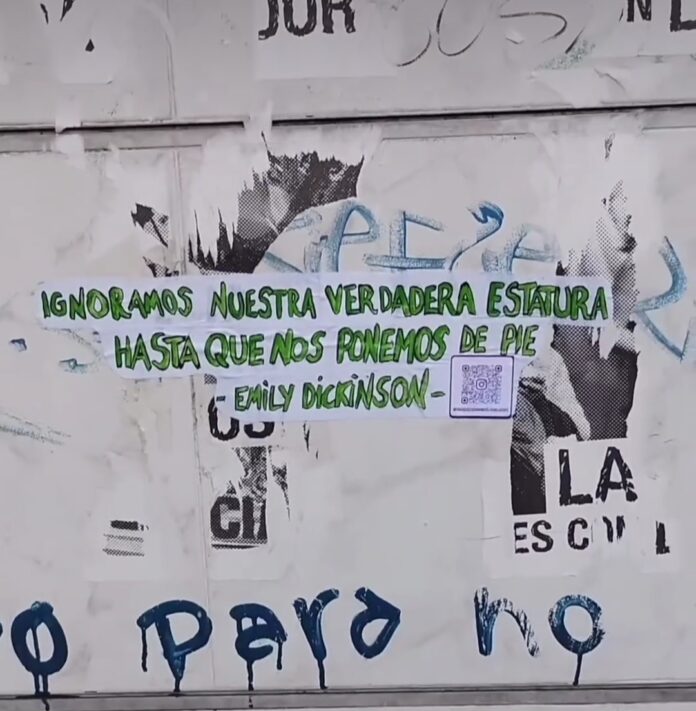 JUR
IGNORAMOS NUESTRA VERDADERA ESTATURA
HASTA QUE NOS PONEMOS DE PIE
- EMILY DICKINSON -
LA
ES
para no